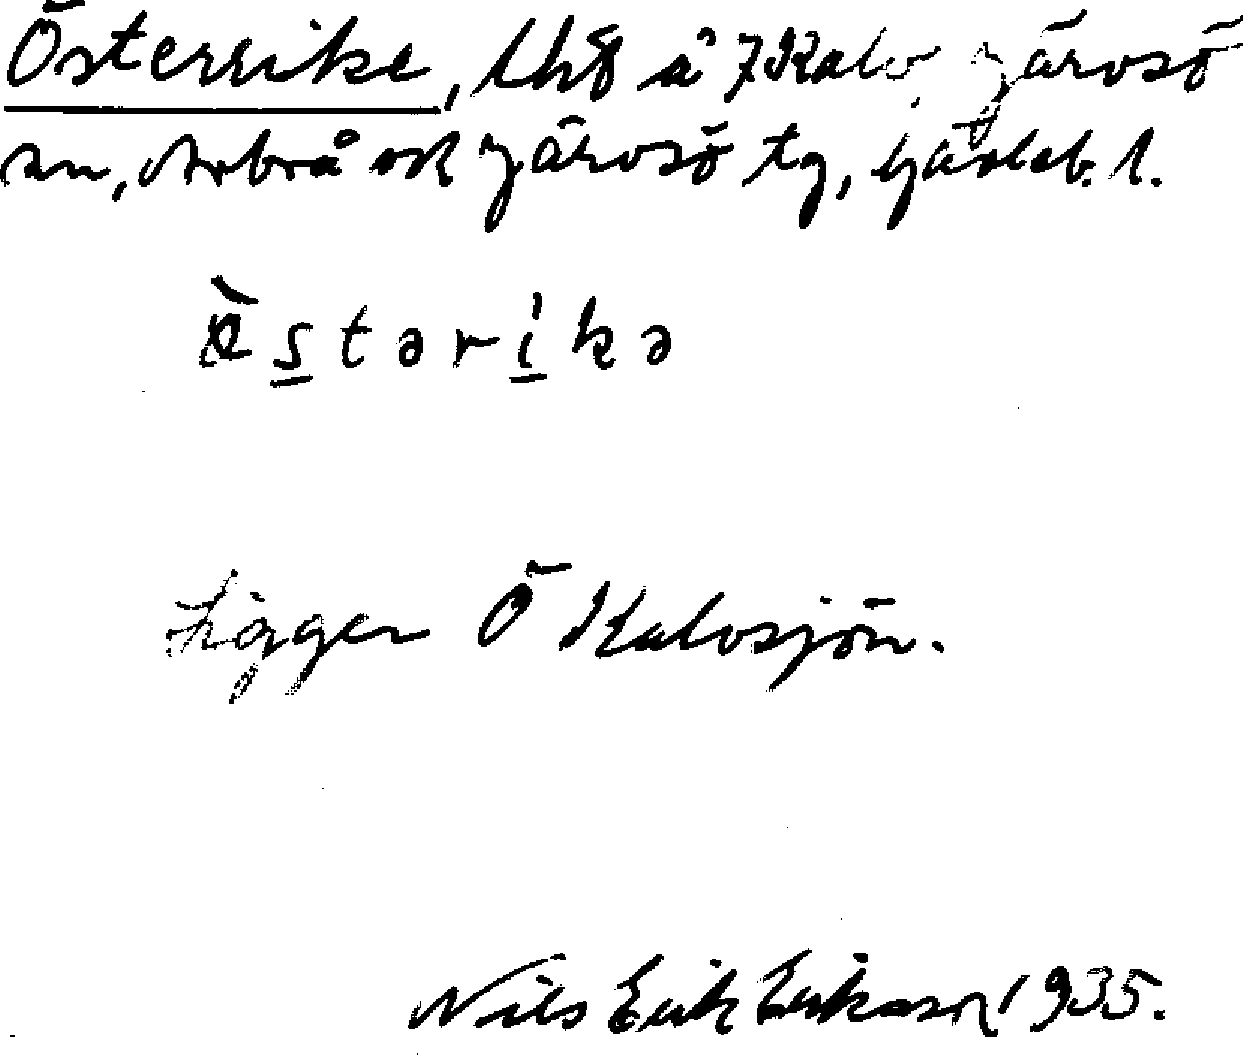 Österrike, lht å 7 Kalv, Järvsö
sn, Arbrå och Järvsö tg, Gävleb. l.
ø̀stərikə
Ligger Ö Kalvsjön.
Nils Erik Eriksson 1935.